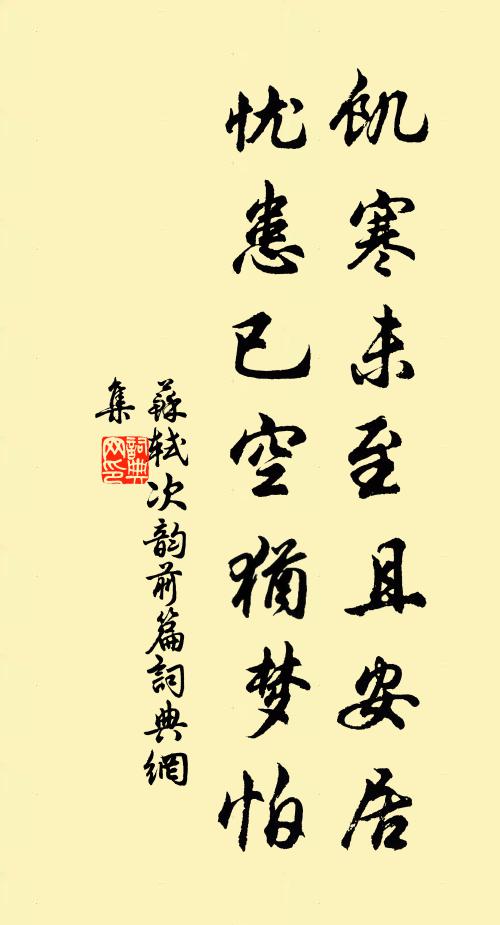 飢寒未至且安居
忧患已空猶梦怕
蘇軾次韵前篇詞典網
集
詞典
网印